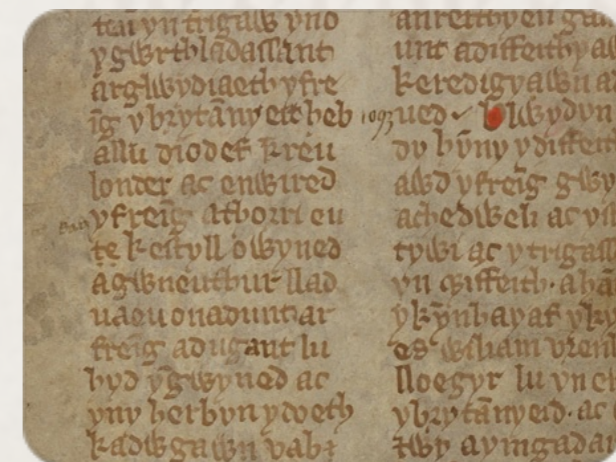 teu yn trigaw yno
ygwrthladassant
arglwydiaeth yfre
ig ybrytanyeit heb
allu diodef kreu
londer ac enwired
yfreig athorri eu
kestyll owyned
agwneuthur llad
uaeuonadunt ar
freig adugant lu
hyd ygwyned ac
yny herbyn ydoeth
kadwgawn vab
anreithyen
unt adiffeithya
keredigyawn a
1093 ued blwydyn
dy hynny ydiffeith
awd yfreig gwy
achedweli ac
tywi ac ytrigas
yn diffeith. aha
ykynhayaf yky
es wiliam vren
lloegyr lu yn e
ybrytanyeid. ac
trwy aymgadar